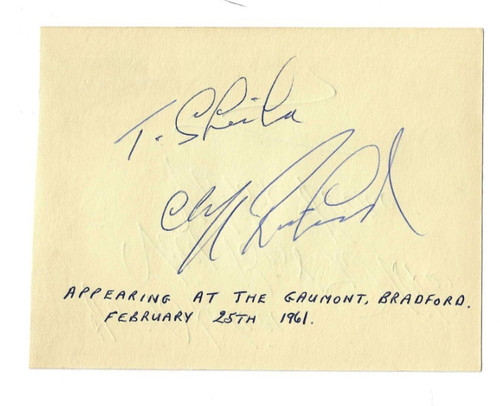 To Sheila
Cliff Richard
APPEARING AT THE GAUMONT, BRADFORD.
FEBRUARY 25TH 1961.